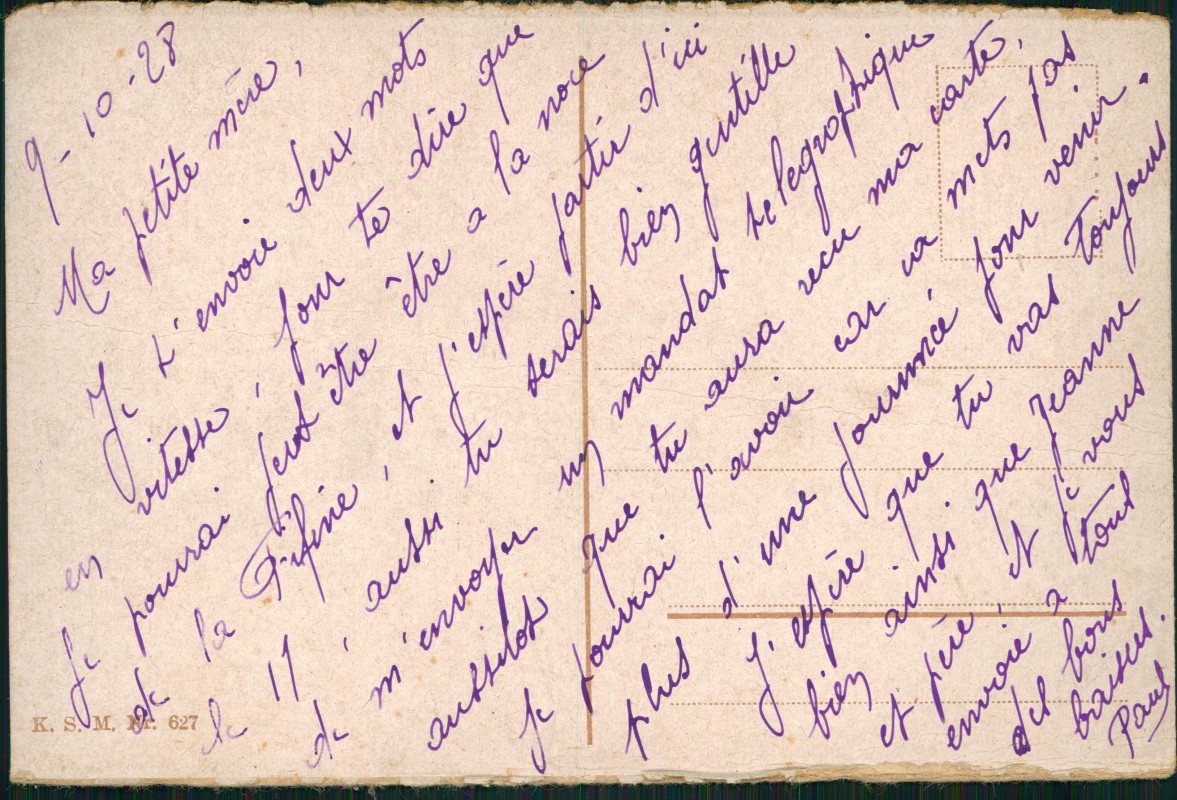 9-10-28
Ma petite mère,
Je t'envoie deux mots
en vitesse, pour te dire que
je pourrai peut être être a la noce
de la Fifine, et j'espère partir d'ici
le 11, aussi tu serais bien gentille
de m'envoyer un mandat telegraphique
aussitot que tu aura recu ma carte,
je pourrai l'avoir car ca mets pas
plus d'une journée pour venir.
J'espère que tu vas toujours
bien ainsi que Jeanne
et père, et je vous
envoie a tous
des bons
baisers.
Paul
K. S. M. Nr. 627